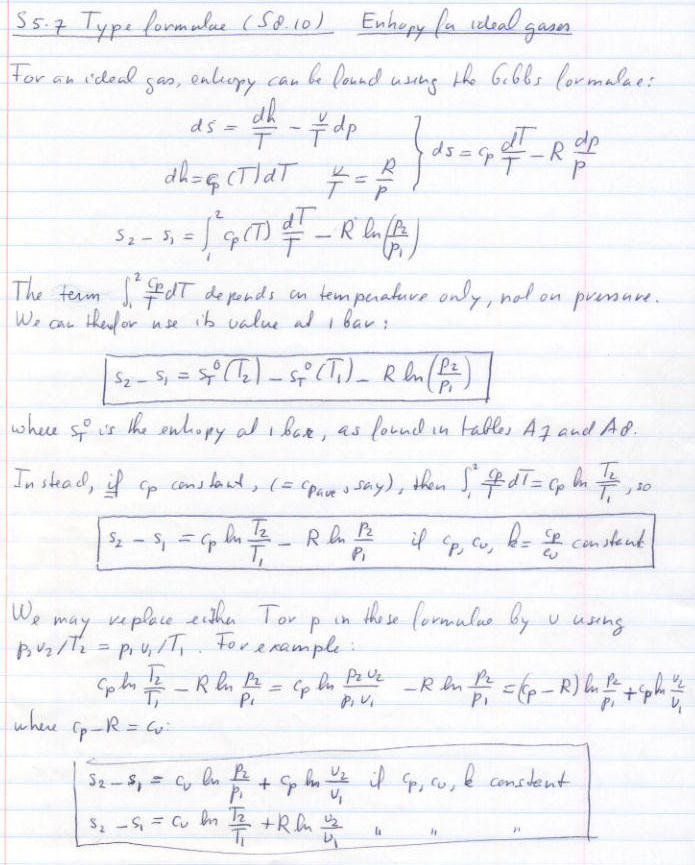 S5.7 Type formulae (S8.10) Entropy for ideal gases
For an ideal gas, entropy can be found using the Gibbs formulae:
ds = dh/T - v/T dp
dh = cp(T)dT v/T = R/p } ds = cp dT/T - R dp/p
s2 - s1 = ∫₁² cp(T) dT/T - R ln(p2/p1)
The term ∫₁² cp/T dT depends on temperature only, not on pressure.
We can therfor use its value at 1 bar:
s2 - s1 = s°T(T2) - s°T(T1) - R ln(p2/p1)
where s°T is the entropy at 1 bar, as found in tables A7 and A8.
Instead, if cp constant, (= cpave, say), then ∫₁² cp/T dT = cp ln T2/T1, so
s2 - s1 = cp ln T2/T1 - R ln p2/p1 if cp, cv, k = cp/cv constant
We may replace either T or p in these formulae by v using
p2v2/T2 = p1v1/T1. For example:
cp ln T2/T1 - R ln p2/p1 = cp ln p2v2/p1v1 - R ln p2/p1 = (cp - R) ln p2/p1 + cp ln v2/v1
where cp - R = cv:
s2 - s1 = cv ln p2/p1 + cp ln v2/v1 if cp, cv, k constant
s2 - s1 = cv ln T2/T1 + R ln v2/v1 " " "